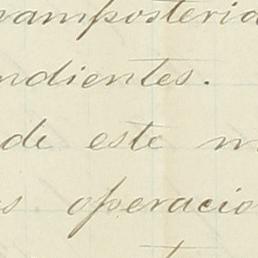 mamposteria
ndientes.
de este m
s operacio